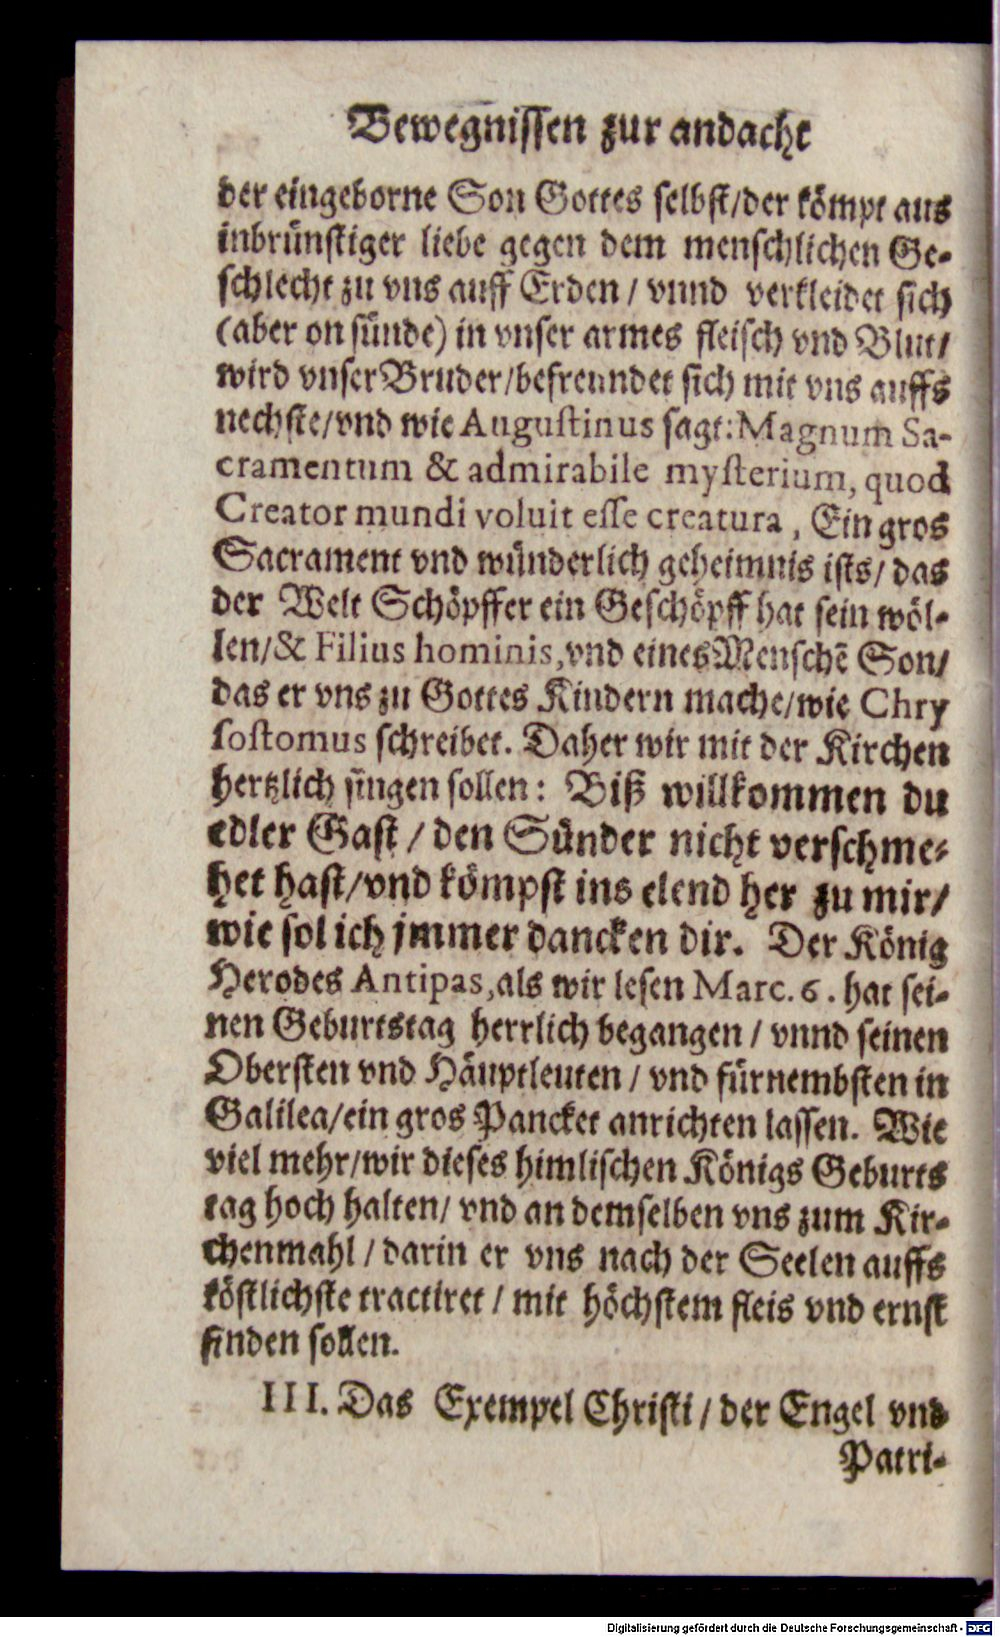 Bewegnissen zur andacht
der eingeborne Son Gottes selbst/der kömpt aus
inbrünstiger liebe gegen dem menschlichen Ge-
schlecht zu vns auff Erden / vnnd verkleidet sich
(aber on sünde) in vnser armes fleisch vnd Blut/
wird vnser Bruder/befreundet sich mit vns auffs
nechste/vnd wie Augustinus sagt: Magnum Sa-
cramentum & admirabile mysterium, quod
Creator mundi voluit esse creatura, Ein gros
Sacrament vnd wünderlich geheimnis ists/ das
der Welt Schöpffer ein Geschöpff hat sein wöl-
len/& Filius hominis,vnd eines Menschē Son/
das er vns zu Gottes Kindern mache/wie Chry
sostomus schreibet. Daher wir mit der Kirchen
hertzlich singen sollen: Biß willkommen du
edler Gast / den Sünder nicht verschme-
het hast/vnd kömpst ins elend her zu mir/
wie sol ich jmmer dancken dir. Der König
Herodes Antipas,als wir lesen Marc. 6. hat sei-
nen Geburtstag herrlich begangen / vnnd seinen
Obersten vnd Häuptleuten / vnd fürnembsten in
Galilea/ein gros Pancket anrichten lassen. Wie
viel mehr/wir dieses himlischen Königs Geburts
tag hoch halten/ vnd an demselben vns zum Kir-
chenmahl / darin er vns nach der Seelen auffs
köstlichste tractiret / mit höchstem fleis vnd ernst
finden sollen.
III. Das Exempel Christi / der Engel vnd
Patri-
Digitalisierung gefördert durch die Deutsche Forschungsgemeinschaft - DFG